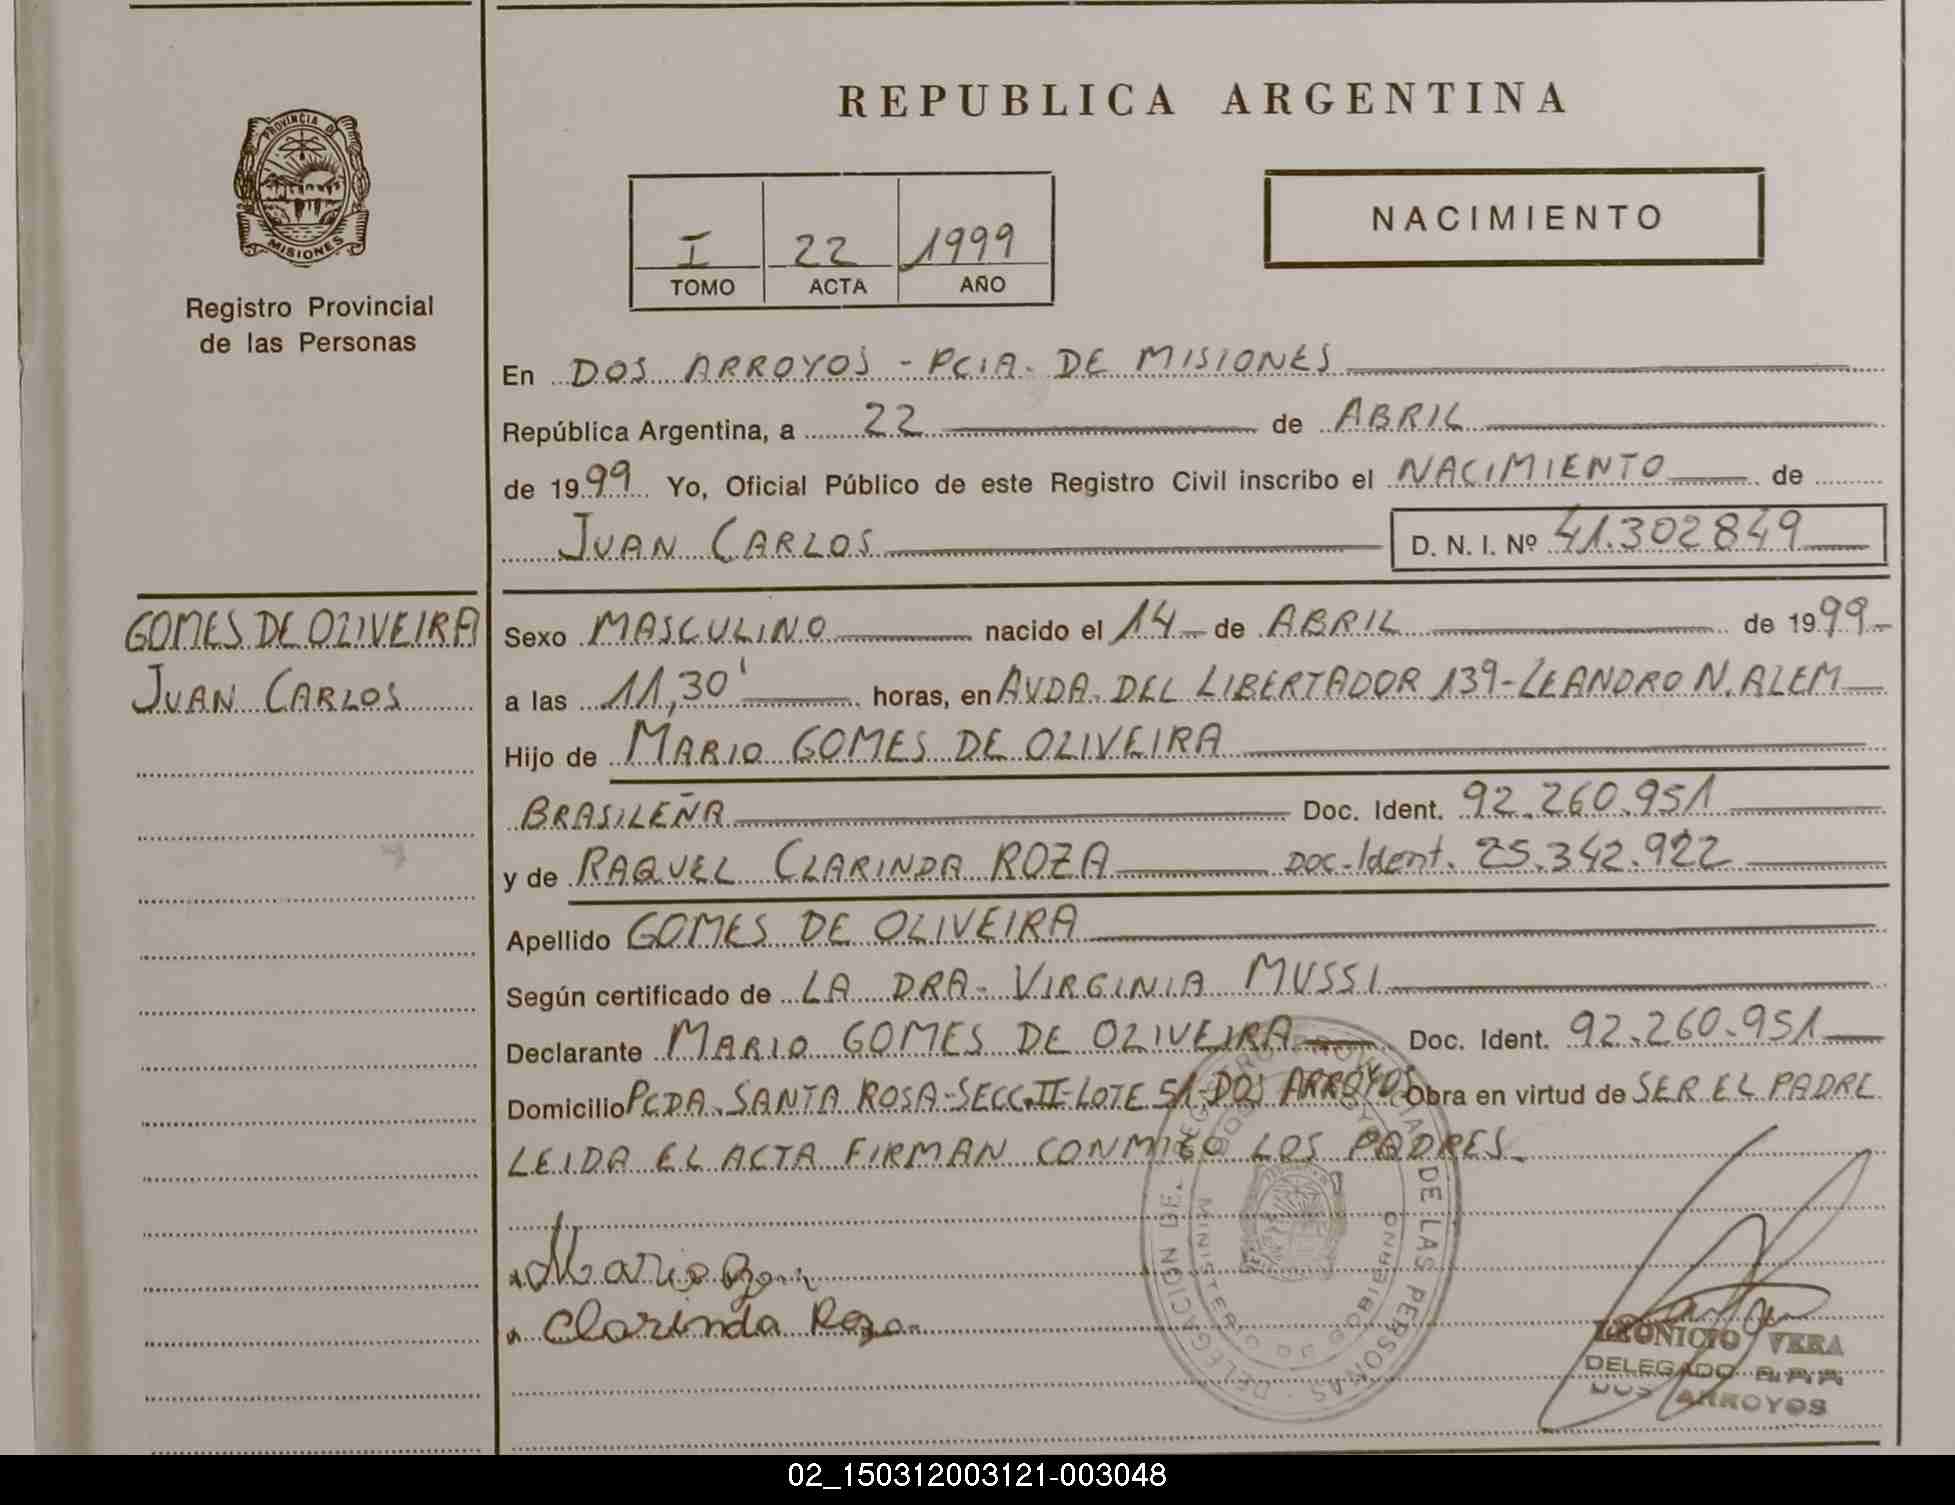 REPUBLICA ARGENTINA
PROVINCIA DE
MISIONES
Registro Provincial
de las Personas
I 22 1999
TOMO ACTA AÑO
NACIMIENTO
En DOS ARROYOS - PCIA. DE MISIONES
República Argentina, a 22 de ABRIL
de 1999 Yo, Oficial Público de este Registro Civil inscribo el NACIMIENTO de
JUAN CARLOS D. N. I. Nº 41.302849
GOMES DE OLIVEIRA
JUAN CARLOS
Sexo MASCULINO nacido el 14 de ABRIL de 1999
a las 11,30' horas, en AVDA. DEL LIBERTADOR 139-LEANDRO N. ALEM
Hijo de MARIO GOMES DE OLIVEIRA
BRASILEÑA Doc. Ident. 92.260.951
y de RAQUEL CLARINDA ROZA Doc. Ident. 25.342.922
Apellido GOMES DE OLIVEIRA
Según certificado de LA DRA. VIRGINIA MUSSI
Declarante MARIO GOMES DE OLIVEIRA Doc. Ident. 92.260.951
Domicilio PCDA. SANTA ROSA-SECC.II-LOTE 51-DOS ARROYOS Obra en virtud de SER EL PADRE
LEIDA EL ACTA FIRMAN CONMIGO LOS PADRES.
Mario
Clarinda Roza
DELEGACION DE PERSONAS DE LAS
MINISTERIO DO GOBIERNO
LEONICIO VERA
DELEGADO R.P.P.
DOS ARROYOS
02_150312003121-003048